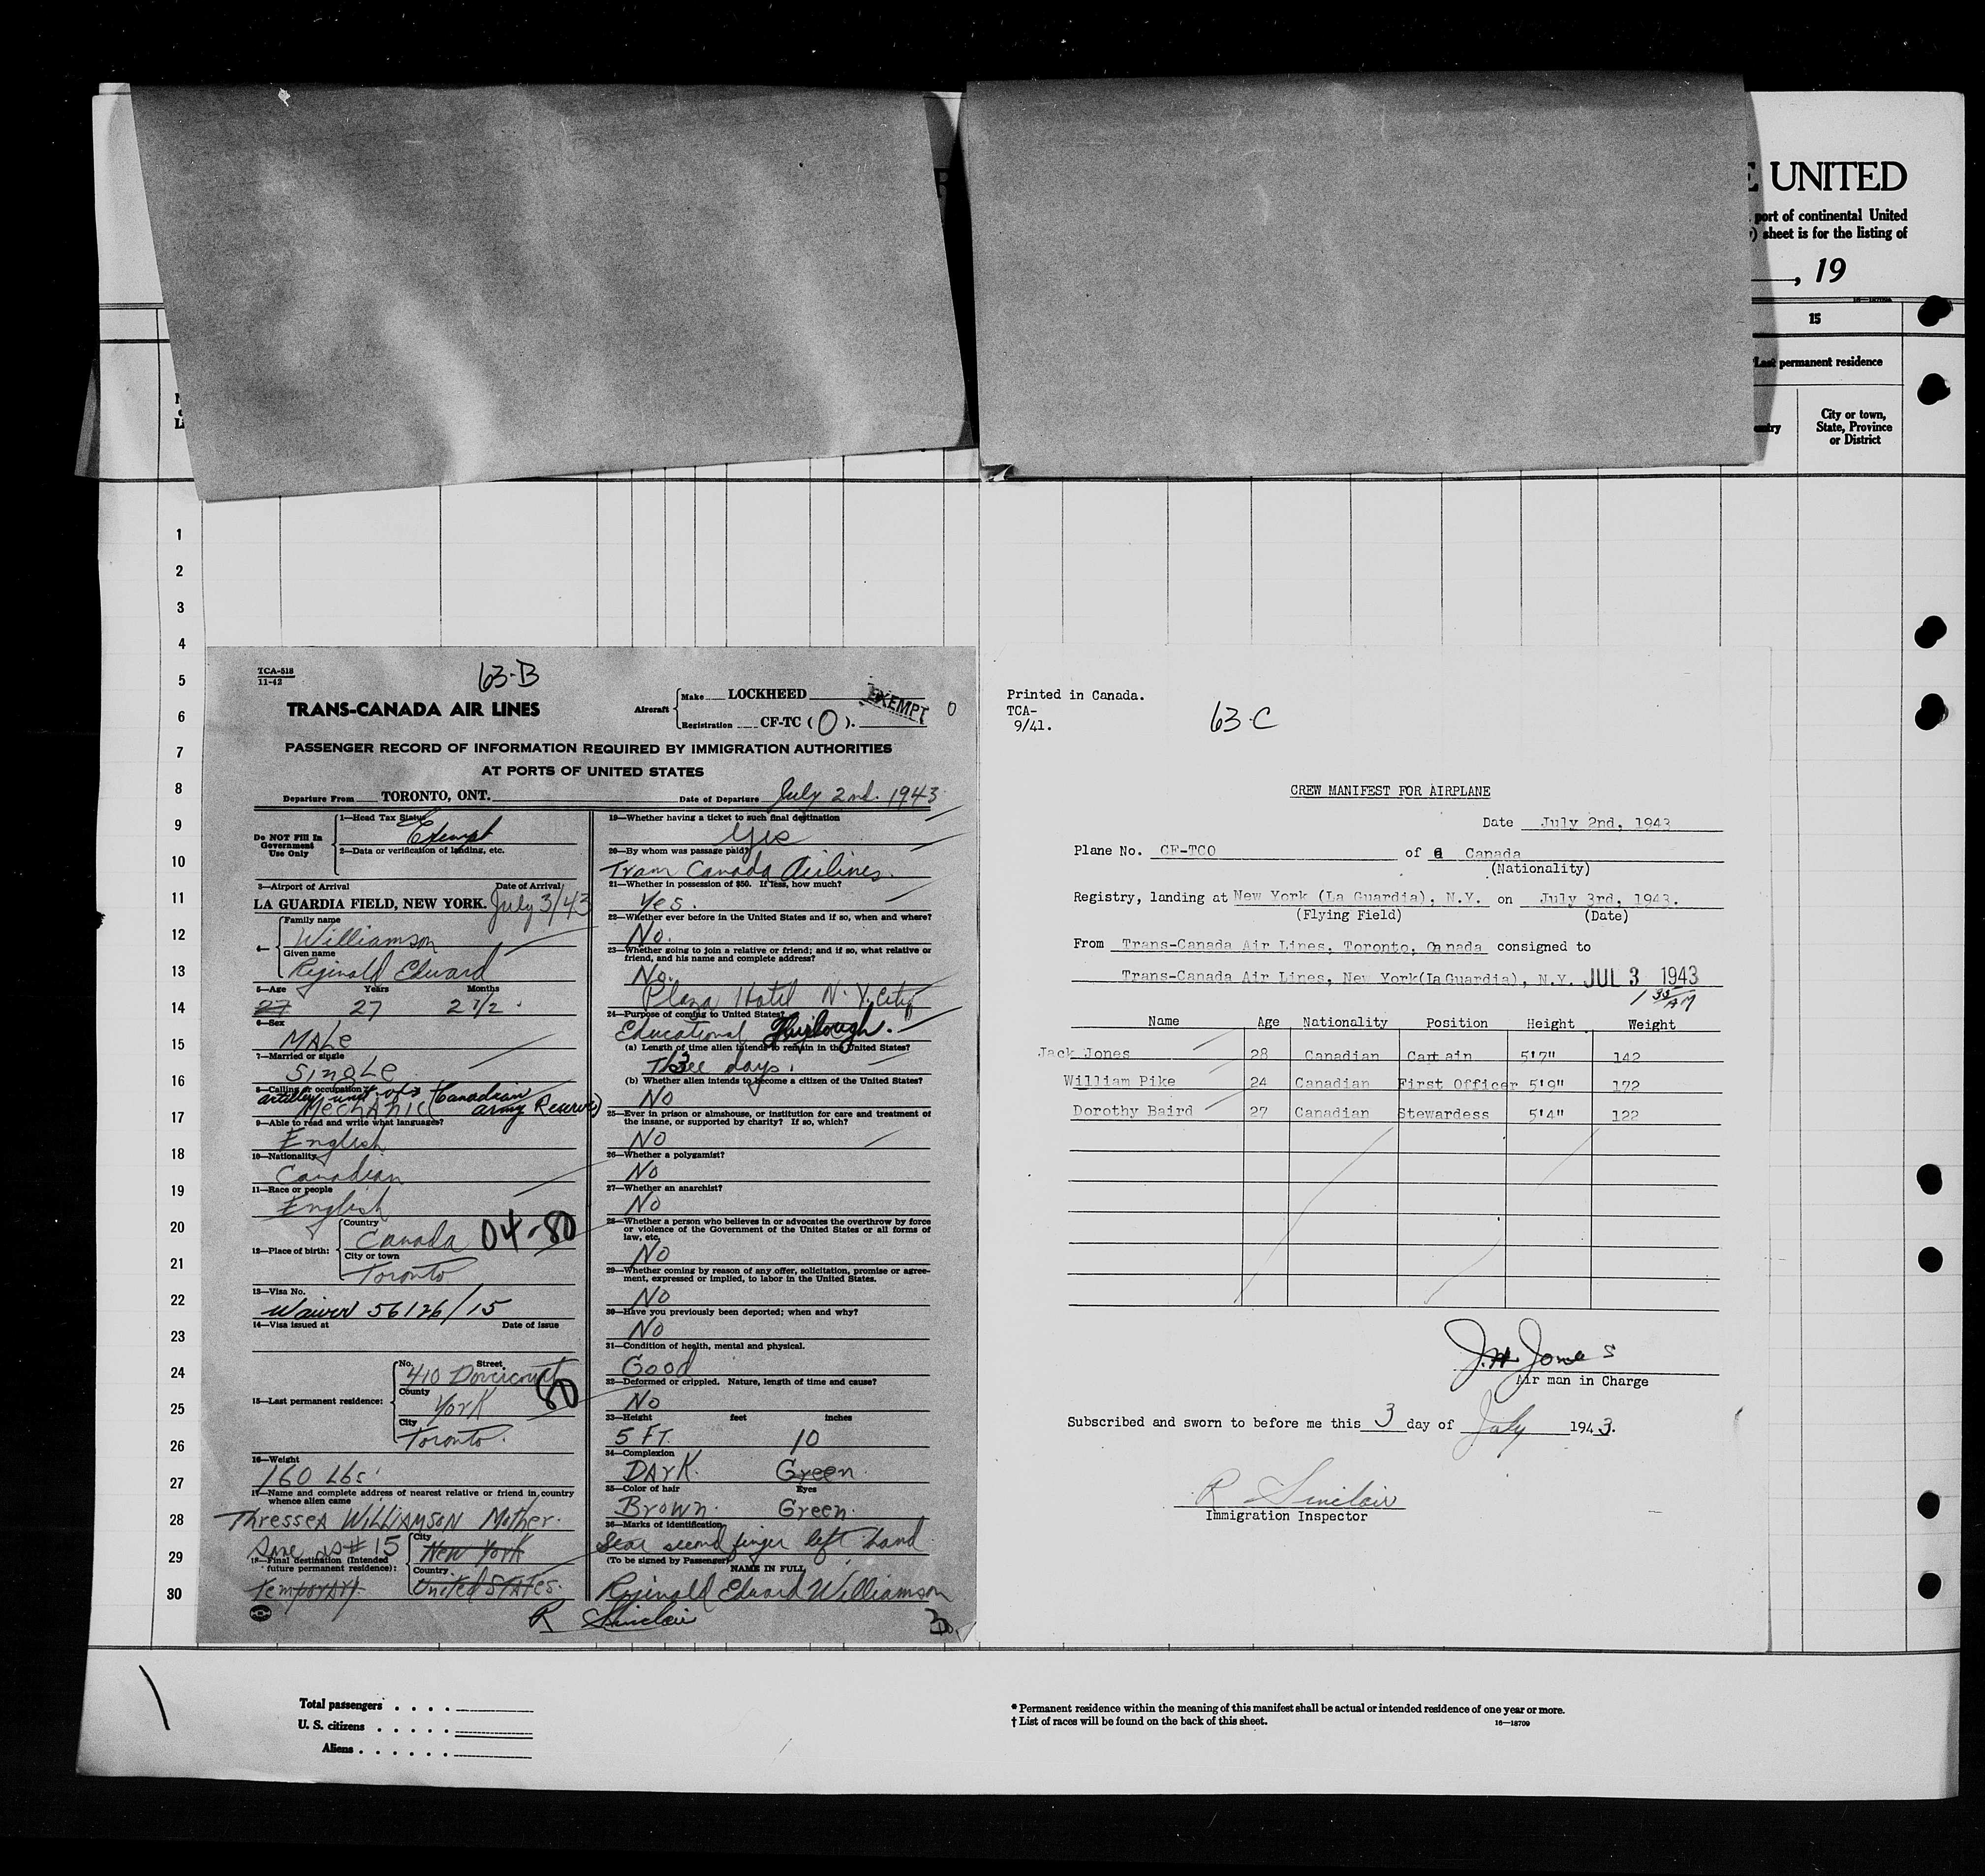 E UNITED
port of continental United
) sheet is for the listing of
, 19
15
Last permanent residence
City or town,
State, Province
or District
1
2
3
4
5
6
7
8
9
10
11
12
13
14
15
16
17
18
19
20
21
22
23
24
25
26
27
28
29
30
TCA-518
11-42
63-B
TRANS-CANADA AIR LINES
Aircraft
Make LOCKHEED
Registration CF-TC (O).
EXEMPT
0
PASSENGER RECORD OF INFORMATION REQUIRED BY IMMIGRATION AUTHORITIES
AT PORTS OF UNITED STATES
Departure From TORONTO, ONT. Date of Departure July 2nd. 1943
Do NOT Fill In
Government
Use Only
1—Head Tax Status
Exempt
2—Data or verification of landing, etc.
3—Airport of Arrival Date of Arrival
LA GUARDIA FIELD, NEW YORK. July 3/43
4— Family name
Williamson
Given name
Reginald Edward
5—Age Years Months
27 27 2 1/2
6—Sex
MALe
7—Married or single
SINgLe
8—Calling or occupation
artillery unit of Canadian
Mechanic army Reserve)
9—Able to read and write what languages?
English
10—Nationality
Canadian
11—Race or people
English
12—Place of birth:
Country
Canada 04-80
City or town
Toronto
13—Visa No.
Waiver 56126/15
14—Visa issued at Date of issue
15—Last permanent residence:
No. Street
410 Dovercourt
County
York
80
City
Toronto.
16—Weight
160 Lbs
17—Name and complete address of nearest relative or friend in country
whence alien came
Thressea WiLLiAmson Mother.
Same as # 15
18—Final destination (Intended
future permanent residence):
Temporary
City
New York
Country
United STATes.
19—Whether having a ticket to such final destination
Yes
20—By whom was passage paid?
Tram Canada Airlines.
21—Whether in possession of $50. If less, how much?
Yes.
22—Whether ever before in the United States and if so, when and where?
No.
23—Whether going to join a relative or friend; and if so, what relative or
friend, and his name and complete address?
No.
Plaza Hotel N.Y. City
24—Purpose of coming to United States?
Educational Furlough.
(a) Length of time alien intends to remain in the United States?
Three days. 3
(b) Whether alien intends to become a citizen of the United States?
No
25—Ever in prison or almshouse, or institution for care and treatment of
the insane, or supported by charity? If so, which?
No
26—Whether a polygamist?
No
27—Whether an anarchist?
No
28—Whether a person who believes in or advocates the overthrow by force
or violence of the Government of the United States or all forms of
law, etc.
No
29—Whether coming by reason of any offer, solicitation, promise or agree-
ment, expressed or implied, to labor in the United States.
No
30—Have you previously been deported; when and why?
No
31—Condition of health, mental and physical.
Good
32—Deformed or crippled. Nature, length of time and cause?
No
33—Height feet inches
5 FT. 10
34—Complexion
DArK. Green
35—Color of hair Eyes
Brown. Green.
36—Marks of identification
Scar second finger left hand
(To be signed by Passenger)
NAME IN FULL
Reginald Edward Williamson
R Sinclair
Printed in Canada.
TCA-
9/41.
63-C
CREW MANIFEST FOR AIRPLANE
Date July 2nd, 1943
Plane No. CF-TCO of a Canada
(Nationality)
Registry, landing at New York (La Guardia), N.Y. on July 3rd, 1943.
(Flying Field) (Date)
From Trans-Canada Air Lines, Toronto, Canada consigned to
Trans-Canada Air Lines, New York(La Guardia), N.Y. JUL 3 1943
1 35 AM
Name Age Nationality Position Height Weight
Jack Jones 28 Canadian Captain 5'7" 142
William Pike 24 Canadian First Officer 5'9" 172
Dorothy Baird 27 Canadian Stewardess 5'4" 122
J.H. Jones
Air man in Charge
Subscribed and sworn to before me this 3 day of July 1943.
R Sinclair
Immigration Inspector
Total passengers
U. S. citizens
Aliens
* Permanent residence within the meaning of this manifest shall be actual or intended residence of one year or more.
† List of races will be found on the back of this sheet.
16—18709